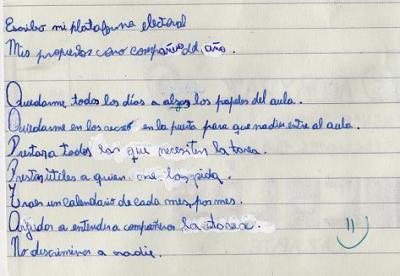 Escribo mi plataforma electoral
Mis propuestas como compañero del año.
Quedarme todos los días a alzar los papeles del aula.
Quedarme en los recreos en la puerta para que nadie entre al aula.
Prestar a todos los que necesiten la tarea.
Prestar útiles a quien me los pida.
Traer un calendario de cada mes, por mes.
Ayudar a entender a compañeros la tarea.
No discriminar a nadie.